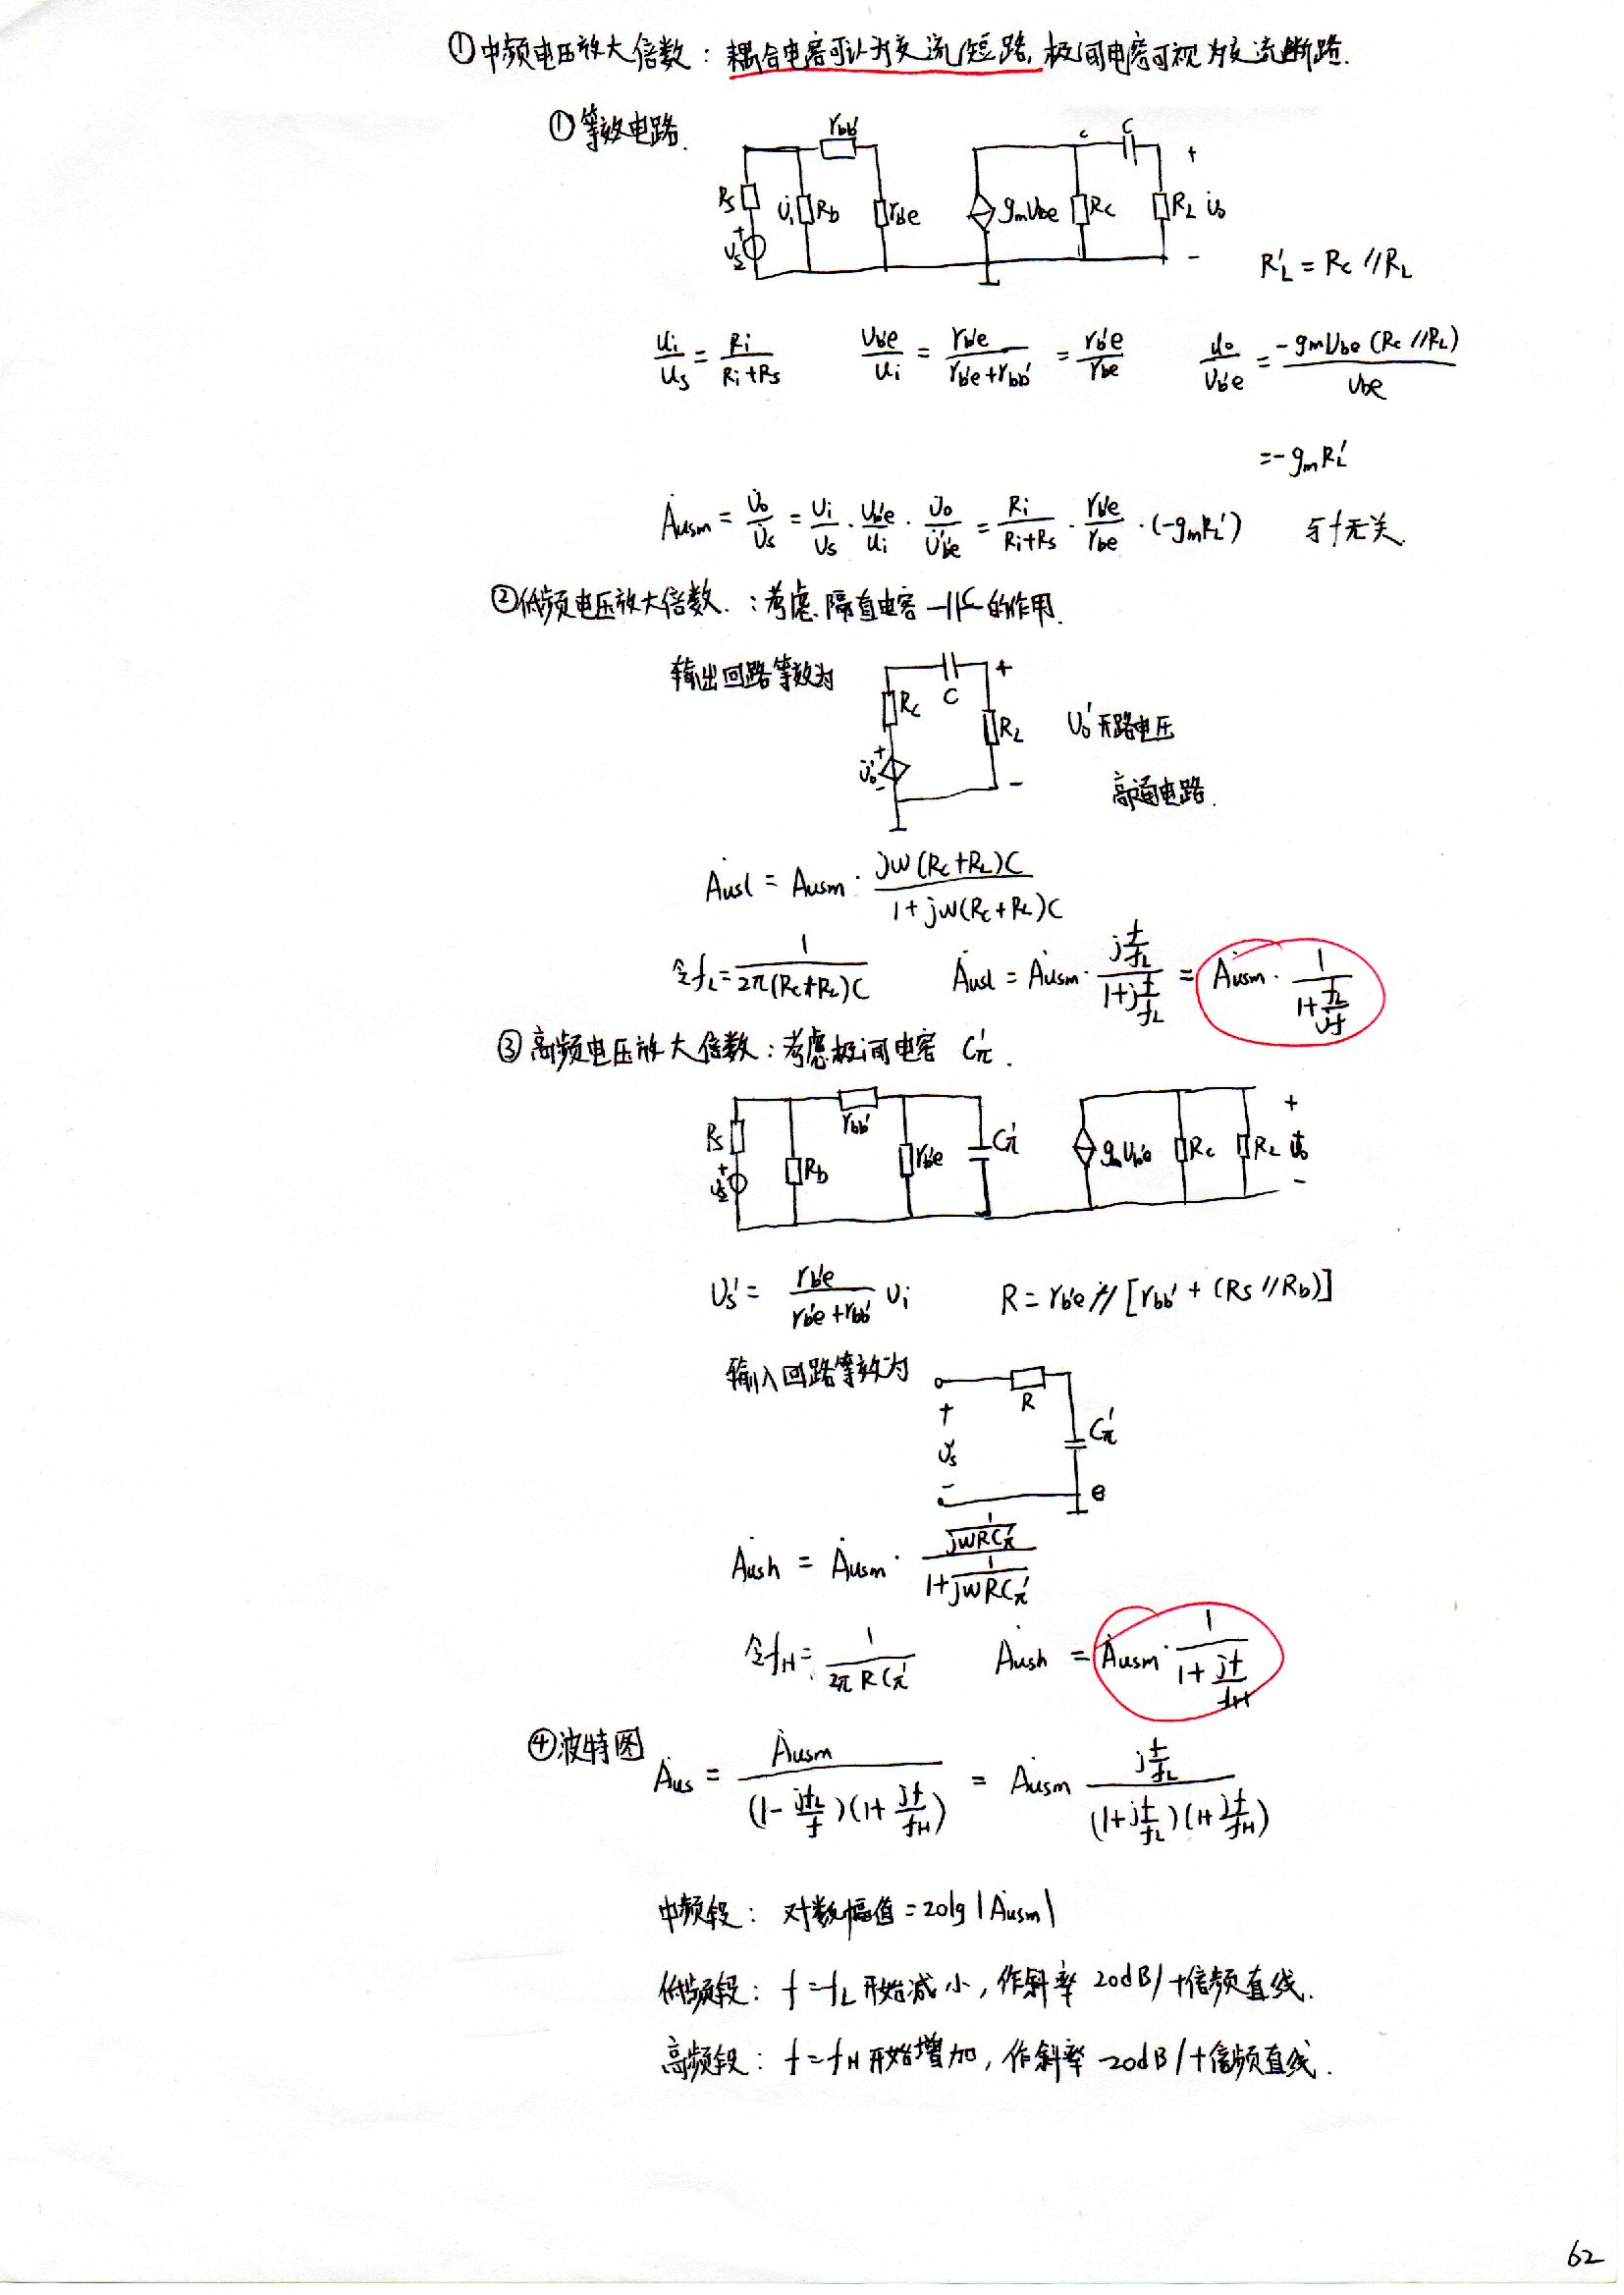 ①中频电压放大倍数：耦合电容可认为交流短路，极间电容可视为交流断路.
①等效电路.
rbb' c C +
Rs U̇i Rb rb'e gmUb'e Rc RL U̇o
+ U̇s -
R'L = Rc // RL
Ui/Us = Ri/(Ri+Rs) Ub'e/Ui = rb'e/(rb'e+rbb') = rb'e/rbe Uo/Ub'e = -gmUb'e(Rc//RL)/Ub'e
= -gmRL'
Ȧusm = U̇o/U̇s = Ui/Us · Ub'e/Ui · U̇o/U̇b'e = Ri/(Ri+Rs) · rb'e/rbe · (-gmRL') 与f无关.
②低频电压放大倍数.：考虑隔直电容 ⊣⊢C 的作用.
输出回路等效为 C +
Rc RL Uo'开路电压
+ U̇o' - -
高通电路.
Ȧusl = Ausm · jω(Rc+RL)C/(1+jω(Rc+RL)C)
令fL = 1/(2π(Rc+RL)C) Ȧusl = Ȧusm · (j f/fL)/(1+j f/fL) = Ȧusm · 1/(1+fL/jf)
③高频电压放大倍数：考虑极间电容 Cπ'.
Rs rbb' Cπ' +
+ U̇s Rb rb'e gmUb'e Rc RL U̇o
-
Us' = rb'e/(rb'e+rbb') Ui R = rb'e // [rbb' + (Rs//Rb)]
输入回路等效为 R
+ Cπ'
U̇s'
- e
Ȧush = Ȧusm · (1/(jωRCπ'))/(1+1/(jωRCπ'))
令fH = 1/(2πRCπ') Ȧush = Ȧusm · 1/(1+jf/fH)
④波特图 Ȧus = Ȧusm/((1-jfL/f)(1+jf/fH)) = Ȧusm (j f/fL)/((1+j f/fL)(1+jf/fH))
中频段：对数幅值=20lg|Ȧusm|
低频段：f=fL开始减小，作斜率 20dB/十倍频直线.
高频段：f=fH开始增加，作斜率 -20dB/十倍频直线.
62